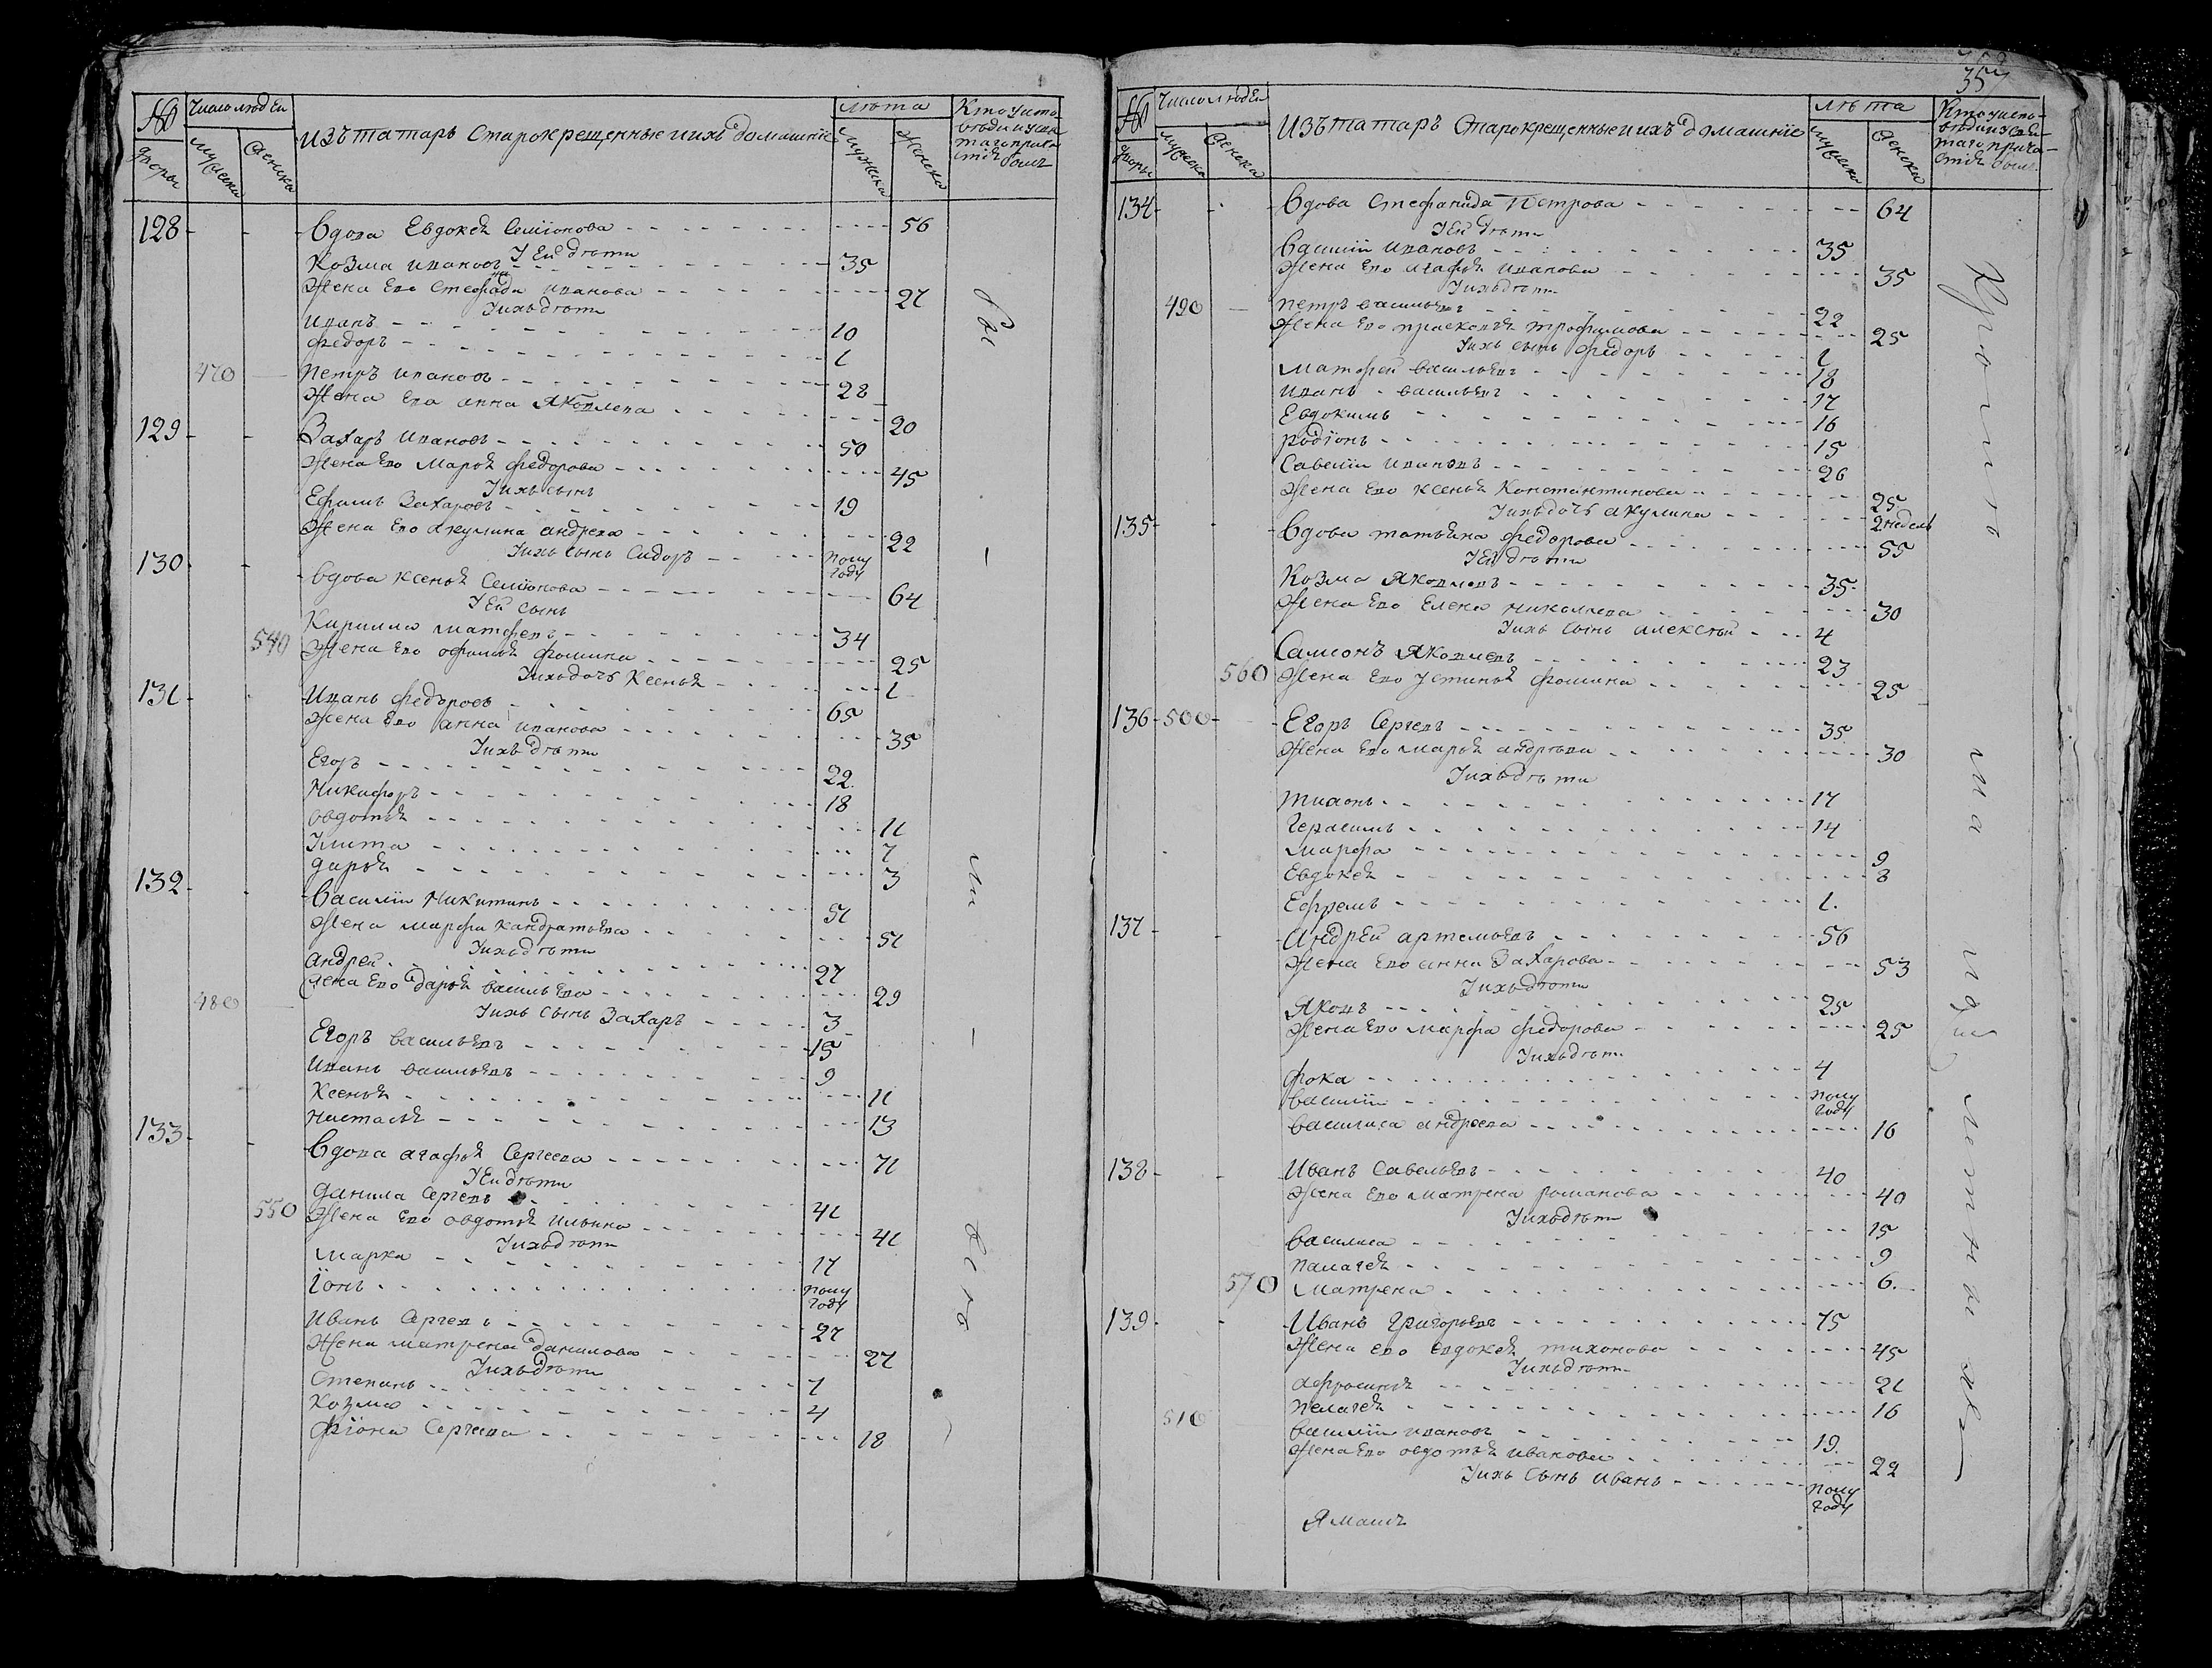 № Число людей Изъ татаръ старокрещенные и ихъ домашніе лѣта
Дворы Мужеска Женска Мужеска Женска
128 Вдова Евдокея Семіонова 56
У ей дѣти
Козма Ивановъ 35
Жена Ево Стефанида Иванова 27
У ихъ дѣти
Иванъ 10
Федоръ 1
470 Петръ Ивановъ 28
Жена Ево Анна Яковлева 20
129 Захаръ Ивановъ 50
Жена Ево Марья Федорова 45
У ихъ сынъ
Ефимъ Захаровъ 19
Жена Ево Акулина Андрева 22
У ихъ сынъ Сидоръ полу году
130 Вдова Ксенья Семіонова 64
У ей сынъ
Кирилло Матфевъ 34
540 Жена Ево Офимья Фомина 25
У ихъ дочь Ксенья 1
131 Иванъ Федоровъ 65
Жена Ево Анна Иванова 35
У ихъ дѣти
Егоръ 22
Никифоръ 18
Овдотья 11
Улита 7
Дарья 3
132 Василіи Никитинъ 51
Жена Марфа Кандратьева 51
У ихъ дѣти
Андреи 27
Жена Ево Дарья Васильева 29
480 У ихъ сынъ Захаръ 3
Егоръ Васильевъ 15
Иванъ Васильевъ 9
Ксенья 11
Настасья 13
133 Вдова Агафья Сергеева 71
У ей дѣти
Данила Сергевъ 41
550 Жена Ево Овдотья Ильина 41
У ихъ дѣти
Марка 17
Іонъ полу году
Иванъ Сергевъ 27
Жена Матрена Данилова 27
У ихъ дѣти
Степанъ 7
Козма 4
Фіона Сергеева 18
357
№ Число людей Изъ татаръ старокрещенные и ихъ домашніе лѣта
Дворы Мужеска Женска Мужеска Женска
134 Вдова Стефанида Петрова 64
У ей дѣти
Василіи Ивановъ 35
Жена Ево Агафья Иванова 35
У ихъ дѣти
490 Петръ Васильевъ 22
Жена Ево Прасковья Трофимова 25
У ихъ сынъ Федоръ 1
Матфеи Васильевъ 18
Иванъ Васильевъ 17
Евдокимъ 16
Родіонъ 15
Савеліи Ивановъ 26
Жена Ево Ксенья Константинова 25
У ихъ дочь Акулина 2 недель
135 Вдова Татьяна Федорова 55
У ей дѣти
Козма Яковлевъ 35
Жена Ево Елена Николаева 30
У ихъ сынъ Алексѣи 4
Самсонъ Яковлевъ 23
560 Жена Ево Устинья Фомина 25
136 500 Егоръ Сергевъ 35
Жена Ево Марья Андрѣева 30
У ихъ дѣти
Тихонъ 17
Герасимъ 14
Марфа 9
Евдокея 8
Ефремъ 1
137 Андреи Артемьевъ 56
Жена Ево Анна Захарова 53
У ихъ дѣти
Яковъ 25
Жена Ево Марфа Федорова 25
У ихъ дѣти
Фока 4
Василіи полу году
Василиса Андреева 16
138 Иванъ Савельевъ 40
Жена Ево Матрена Романова 40
У ихъ дѣти
Василиса 15
Палагея 9
570 Матрена 6
139 Иванъ Григорьевъ 75
Жена Ево Евдокея Тихонова 45
У ихъ дѣти
Афросинья 21
Пелагея 16
510 Василіи Ивановъ 19
Жена Ево Овдотья Иванова 22
У ихъ сынъ Иванъ полу году